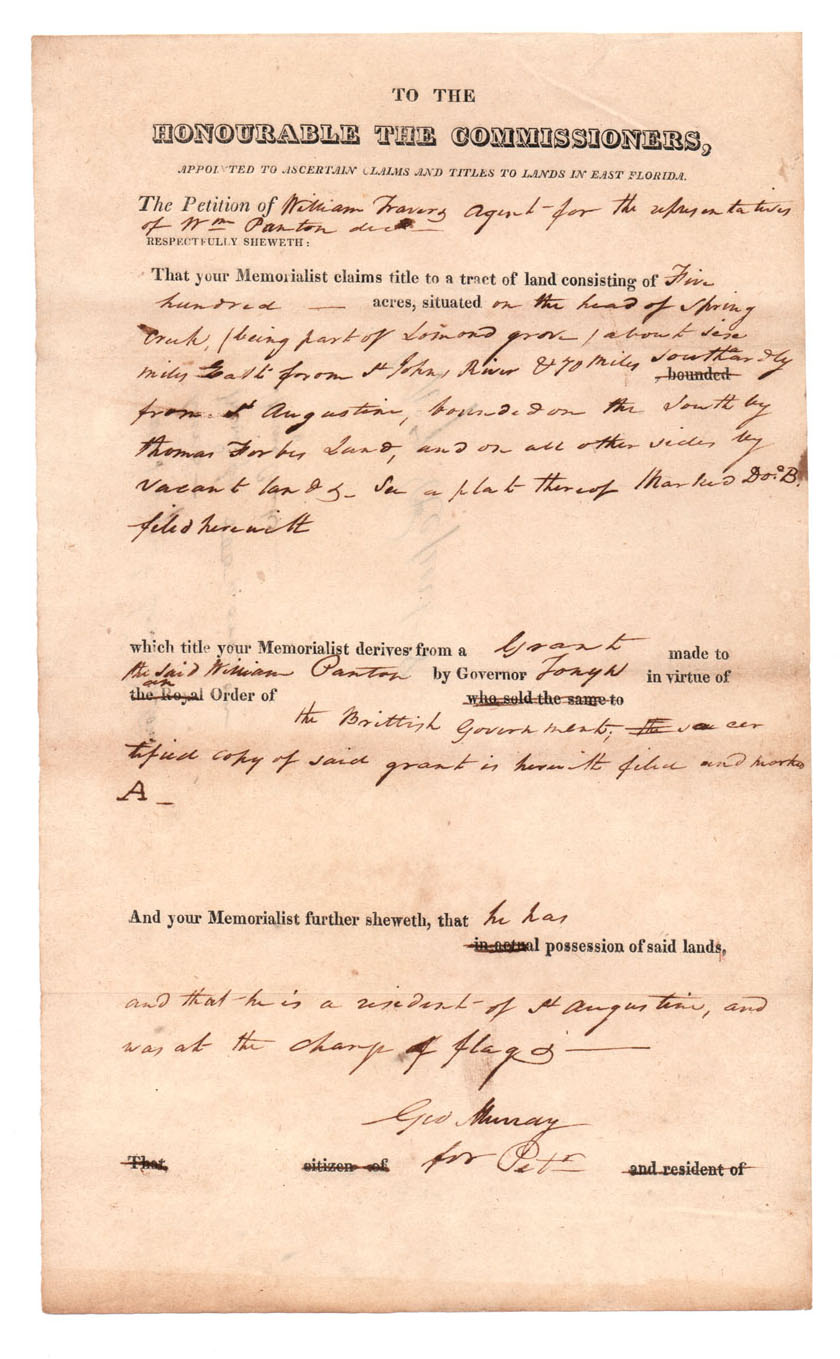 TO THE
HONOURABLE THE COMMISSIONERS,
APPOINTED TO ASCERTAIN CLAIMS AND TITLES TO LANDS IN EAST FLORIDA.
The Petition of William Travers Agent for the representatives
of Wm Panton decd
RESPECTFULLY SHEWETH:
That your Memorialist claims title to a tract of land consisting of Five
hundred — acres, situated on the head of Spring
Creek, (being part of Lomond grove) about six
miles East from St Johns River & 70 miles Southardly
bounded
from St Augustine, bounded on the South by
Thomas Forbes Land, and on all other sides by
vacant lands - See a plat thereof Marked Do: B.
filed herewith
which title your Memorialist derives from a Grant made to
the said William Panton by Governor Tonyn in virtue of
an
the Royal Order of who sold the same to
the Brittish Government, the a cer
tified copy of said grant is herewith filed and marked
A —
And your Memorialist further sheweth, that he has
in actual possession of said lands,
and that he is a resident of St Augustine, and
was at the change of flags —
Geo Murray
That citizen of for Petr and resident of